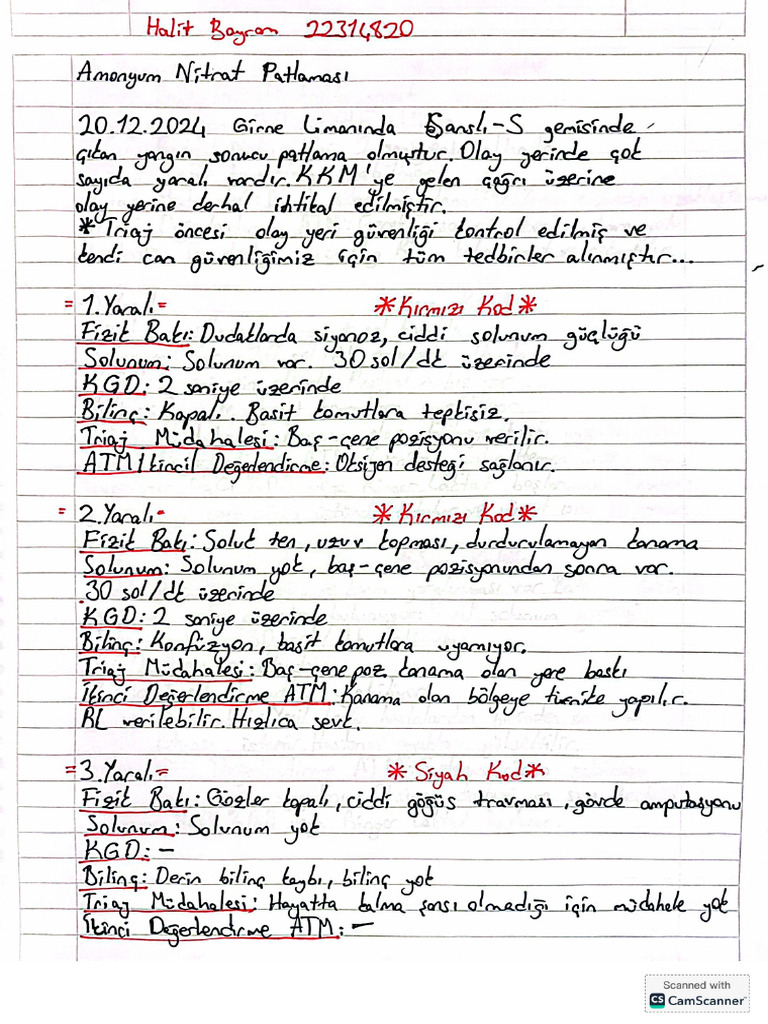 Halit Bayram 22314820
Amonyum Nitrat Patlaması
20.12.2024 Girne Limanında Şanslı-S gemisinde
çıkan yangın sonucu patlama olmuştur. Olay yerinde çok
sayıda yaralı vardır. KKM'ye gelen çağrı üzerine
olay yerine derhal intikal edilmiştir.
*Triaj öncesi olay yeri güvenliği kontrol edilmiş ve
kendi can güvenliğimiz için tüm tedbirler alınmıştır...
= 1.Yaralı= *Kırmızı Kod*
Fizik Bakı: Dudaklarda siyanoz, ciddi solunum güçlüğü
Solunum: Solunum var. 30 sol/dk üzerinde
KGD: 2 saniye üzerinde
Bilinç: Kapalı. Basit komutlara tepkisiz.
Triaj Müdahalesi: Baş-çene pozisyonu verilir.
ATM/İkincil Değerlendirme: Oksijen desteği sağlanır.
= 2.Yaralı= *Kırmızı Kod*
Fizik Bakı: Soluk ten, uzuv kopması, durdurulamayan kanama
Solunum: Solunum yok, baş-çene pozisyonundan sonra var.
30 sol/dk üzerinde
KGD: 2 saniye üzerinde
Bilinç: Konfüzyon, basit komutlara uyamıyor.
Triaj Müdahalesi: Baş-çene poz. kanama olan yere baskı
İkinci Değerlendirme ATM: Kanama olan bölgeye turnike yapılır.
RL verilebilir. Hızlıca sevk.
= 3.Yaralı= *Siyah Kod*
Fizik Bakı: Gözler kapalı, ciddi göğüs travması, gövde amputasyonu
Solunum: Solunum yok
KGD: —
Bilinç: Derin bilinç kaybı, bilinç yok
Triaj Müdahalesi: Hayatta kalma şansı olmadığı için müdahele yok
İkinci Değerlendirme ATM: —
Scanned with
CS CamScanner